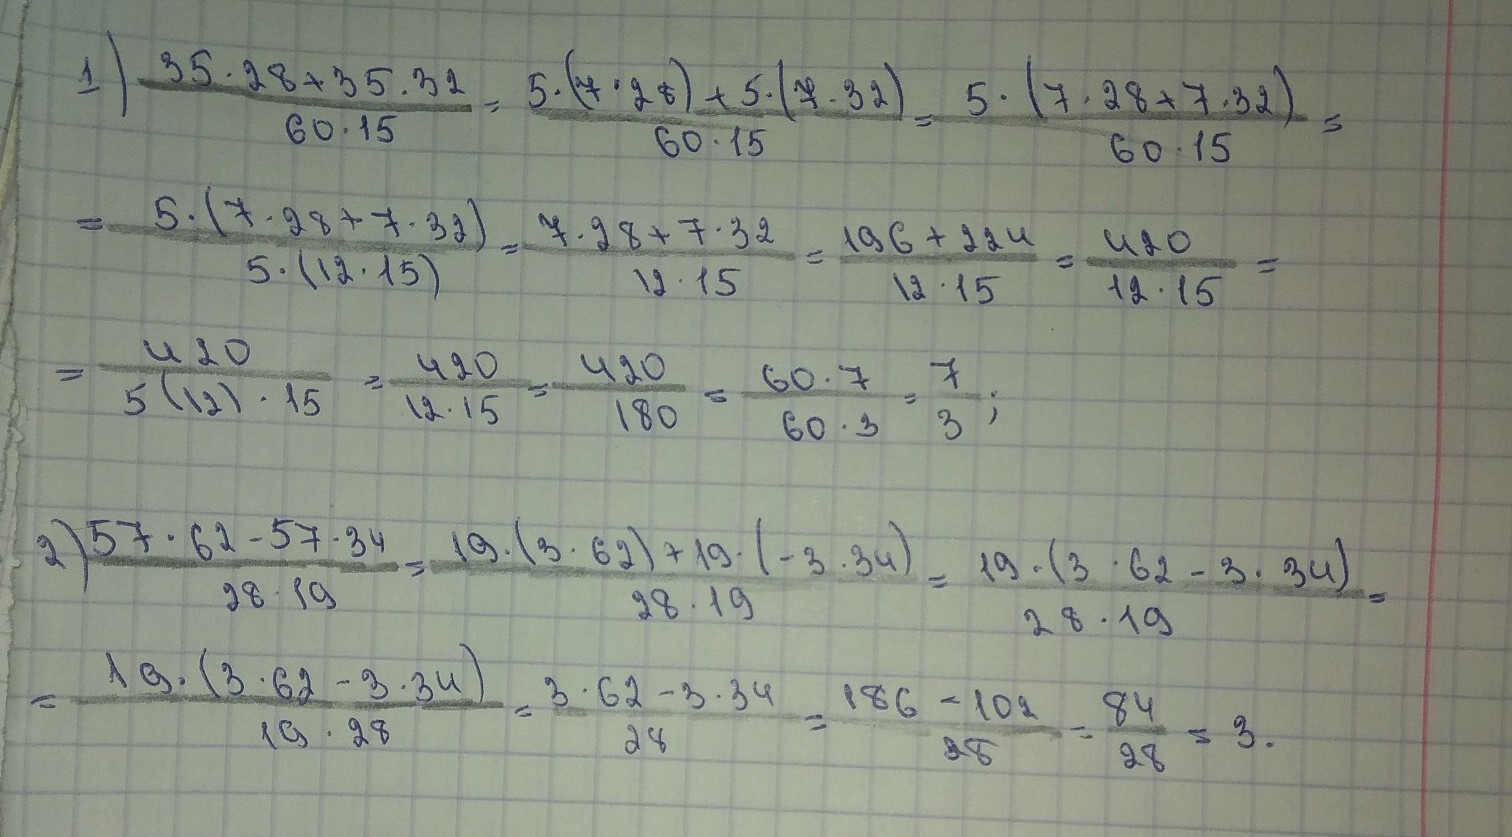 1) (35·28+35·32)/(60·15) = (5·(7·28)+5·(7·32))/(60·15) = (5·(7·28+7·32))/(60·15) =
= (5·(7·28+7·32))/(5·(12·15)) = (7·28+7·32)/(12·15) = (196+224)/(12·15) = 420/(12·15) =
= 420/(5(12)·15) = 420/(12·15) = 420/180 = (60·7)/(60·3) = 7/3;
2) (57·62-57·34)/(28·19) = (19·(3·62)+19·(-3·34))/(28·19) = (19·(3·62-3·34))/(28·19) =
= (19·(3·62-3·34))/(19·28) = (3·62-3·34)/28 = (186-102)/28 = 84/28 = 3.